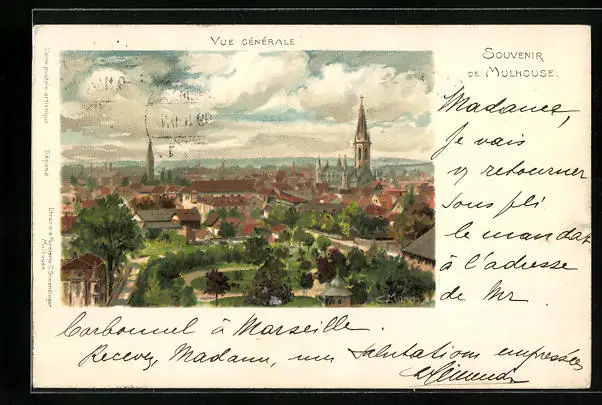 VUE GÉNÉRALE
SOUVENIR
DE MULHOUSE.
Carte postale artistique
Déposé
Mulhouse
Madame,
Je vais
y retourner
sous pli
le mandat
à l'adresse
de Mr
Carbonnel à Marseille.
Recevez, Madame, mes salutations empressées